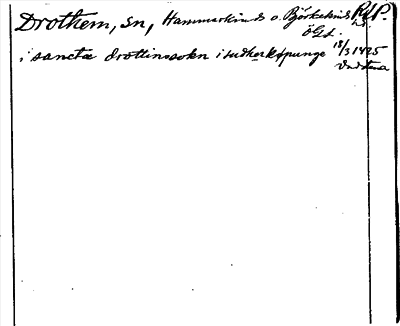 Drothem, sn, Hammarkinds o. Björkekinds hd. RAP.
ÖGl.
i sancte drottinssokn i sudherkøpunge 18/3 1495
Vadstena